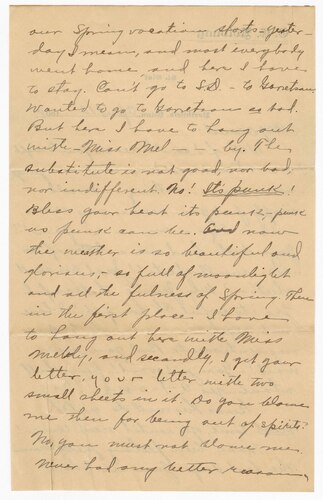 our Spring vacation starts yester-
day I mean, and most everybody
went home, and here I have
to stay. Can't go to S.D - to
Wanted to go to so bad.
But here I have to hang out
with - Miss Mel - - - - by. The
substitute is not good, nor bad,
nor indifferent. No! Its punk!
Bless your heart its punk - punk
as punk can be. And now
the weather is so beautiful and
glorious, - so full of moonlight
and all the fulness of Spring. Then
in the first place I have
to hang out here with Miss
Melby, and secondly, I get your
letter, your letter with two
small sheets in it. Do you blame
me then for being out of spirits?
No, you must not blame me.
Never had any better reason,